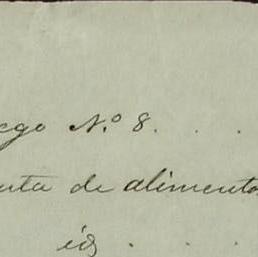 ego N.º 8. . .
nta de alimentos
id . . .